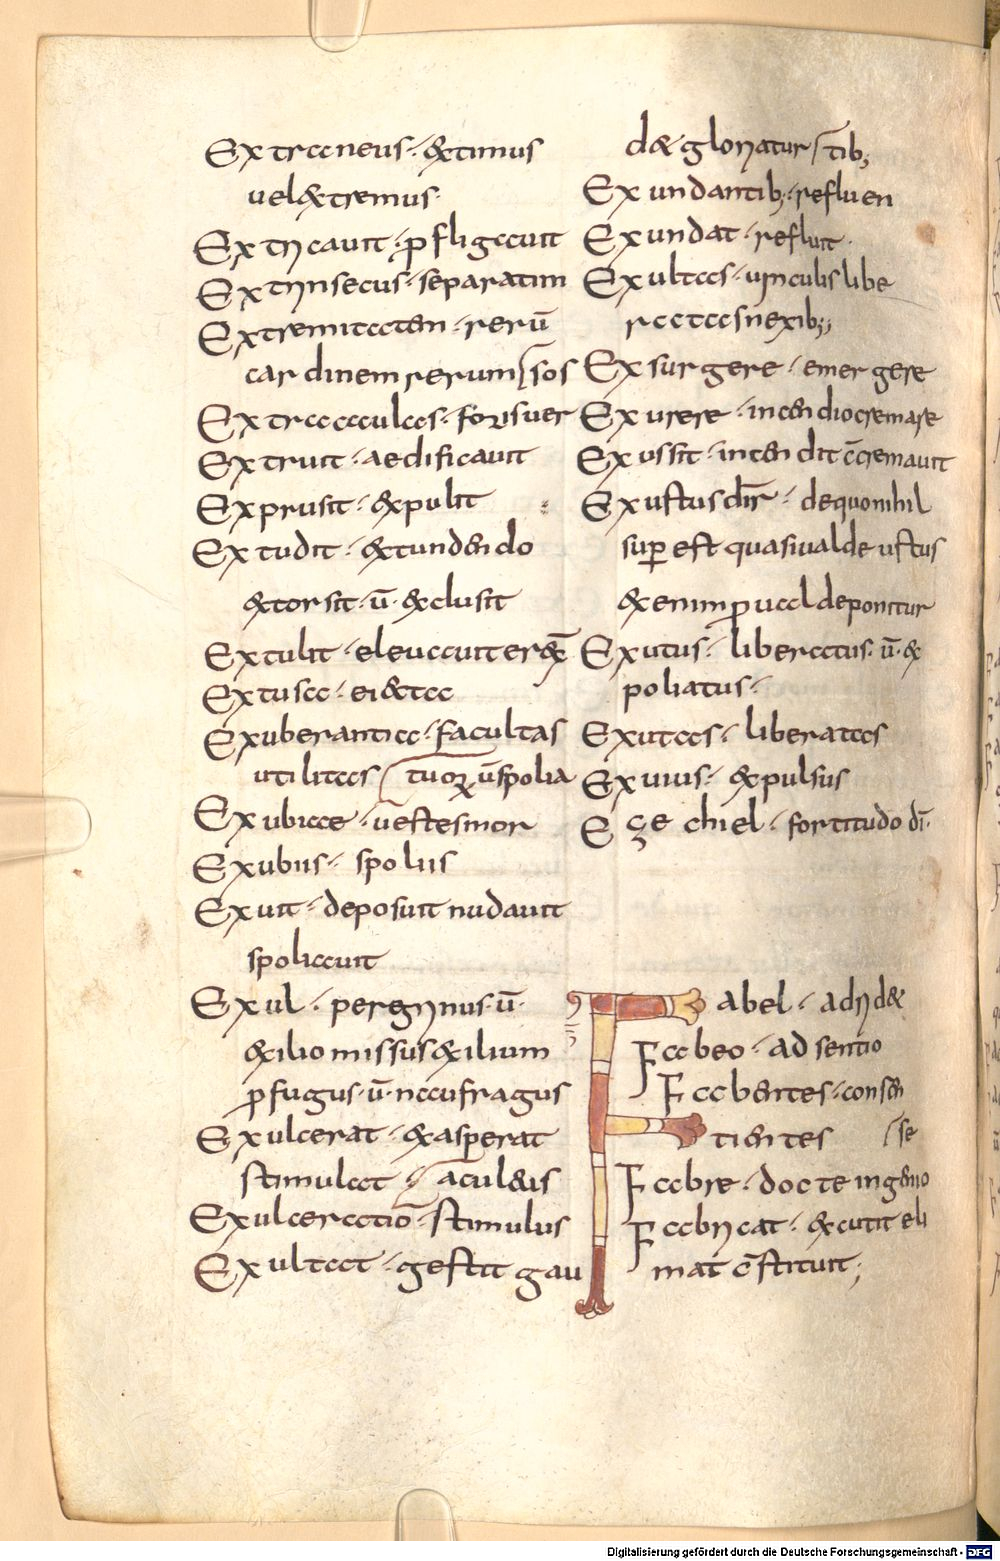 Extraneus · extimus
uel extremus ·
Extricauit · p̱fligauit
Extrinsecus · separatim
Extremitaten · rerū
cardinem rerum / sos
Extra aculas · forisuer
Extruit · aedificauit
Exprusit · expulit
Extudit · extundendo
extorsit · ū · exclusit
Extulit · eleuauit
Extusa · eiecta
Exuberantia · facultas
utilitas / tuoꝝ ū spolia
Exubiae · uestes mor
Exubiis · spoliis
Exuit · deposuit nudauit
spoliauit
Exul · peregrinus · ū ·
exilio missus exilium
ꝓfugus · ū · naufragus
Exulcerat · exasperat
stimulat / aculeis
Exulceratiō · stimulus
Exultat · gestit gau
det gloriatur / tib;
Exundantib; · refluen
Exundat · refluit ·
Exultas · uinculis libe
ratas nexib;
Exsurgere · emergere
Exurere · incendio cremare
Exussit · incendit c̄cremauit
Exustus dīr · de quo nihil
suꝑest quasi ualde ustus
ex enim ꝓ ual deponitur
Exutus · liberatus · ū · ex
poliatus ·
Exutas · liberatas
Exuius · expulsus
Ezechiel · fortitudo dī ·
Fabel · adridet
Fabeo · adsentio
Fabentes · consen
tientes / se
Fabre · docte ingenio
Fabricat · excutit eli
mat c̄stituit;